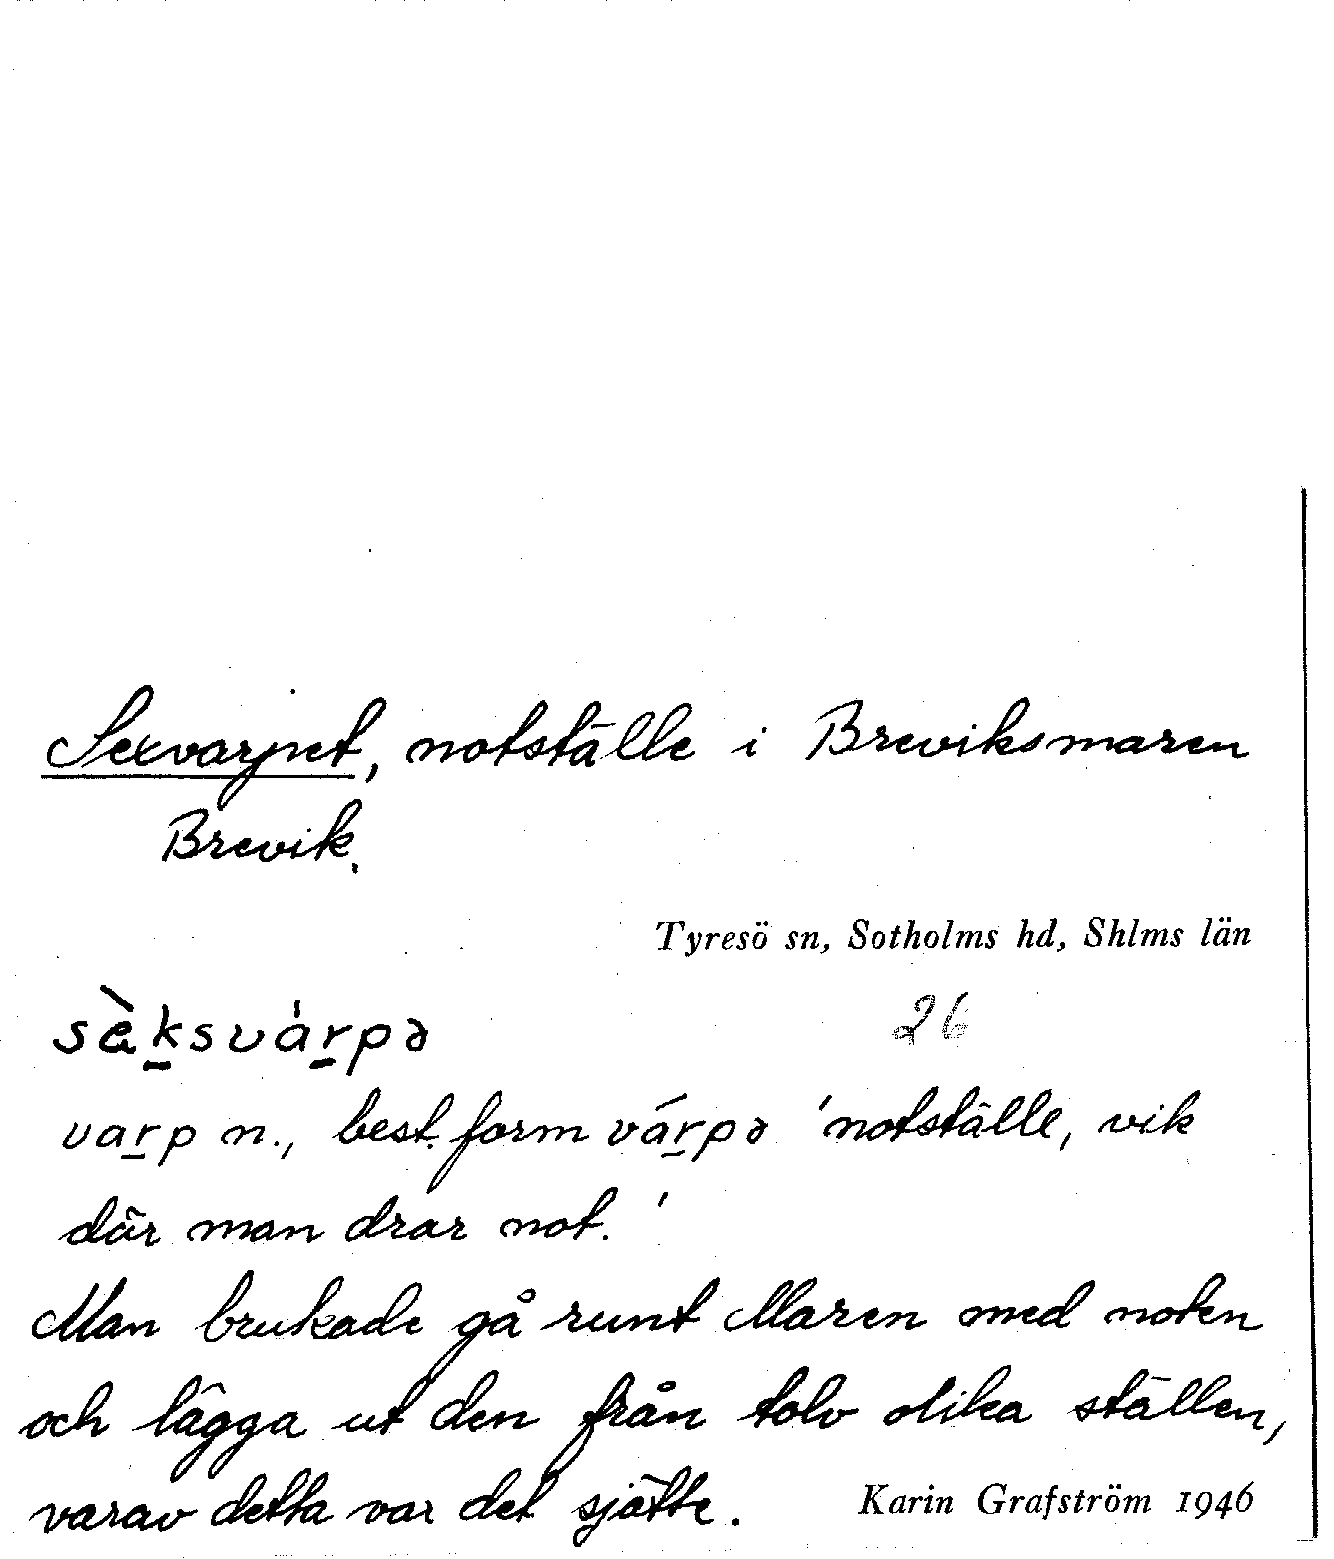 Sexvarpet, notställe i Breviksmaren
Brevik.
Tyresö sn, Sotholms hd, Shlms län
sὲk̠svár̠pə 26
var̠p n., best. form vár̠pə 'notställe, vik
där man drar not.'
Man brukade gå runt Maren med noten
och lägga ut den från tolv olika ställen,
varav detta var det sjätte. Karin Grafström 1946